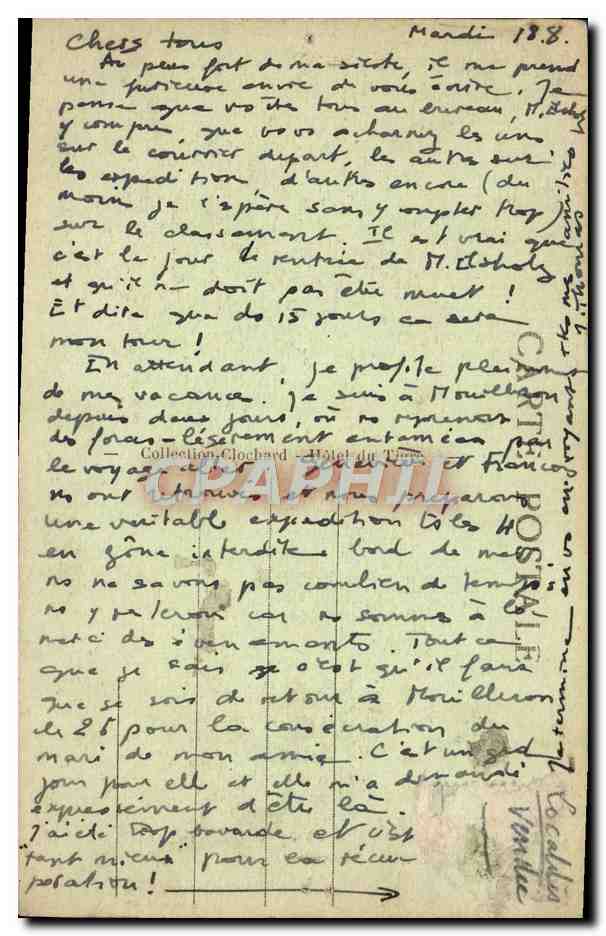 Mardi 18.8.
Chers tous
Au plus fort de ma sieste, il me prend
une furieuse envie de vous écrire. Je
pense que vous êtes tous au bureau, M.
y compris, que vous acharnez les uns
sur le courrier départ, les autres sur
les expedition d'autres encore (du
moins je l'espère sans y compter trop)
sur le classement. Il est vrai que
c'est le jour de rentrée de M.
et qu'il ne doit pas être muet !
Et dire que ds 15 jours ce sera
mon tour !
En attendant, je profite
de mes vacances. Je suis à Mouilleron
depuis deux jours, où ns reprenons
des forces légèrement entamées par
le voyage aller. et
ns ont retrouvés et nous préparons
une véritable expedition ts les 4
en zône interdite bord de mer
ns ne savons pas combien de temps
ns y resterons car ns sommes à la
merci des évènements. Tout ce
que je sais c'est qu'il faut
que je sois de retour à Mouilleron
le 26 pour la consécration du
mari de mon amie. C'est un grd
jour pour elle et elle m'a demandé
expressément d'être là.
J'ai été trop bavarde et c'est
"tant mieux" pour la récu-
pération !
Je termine en vs envoyant mes amitiés
Vendée
Collection Clochard - Hôtel du
CARTE POSTALE
CPARAMA